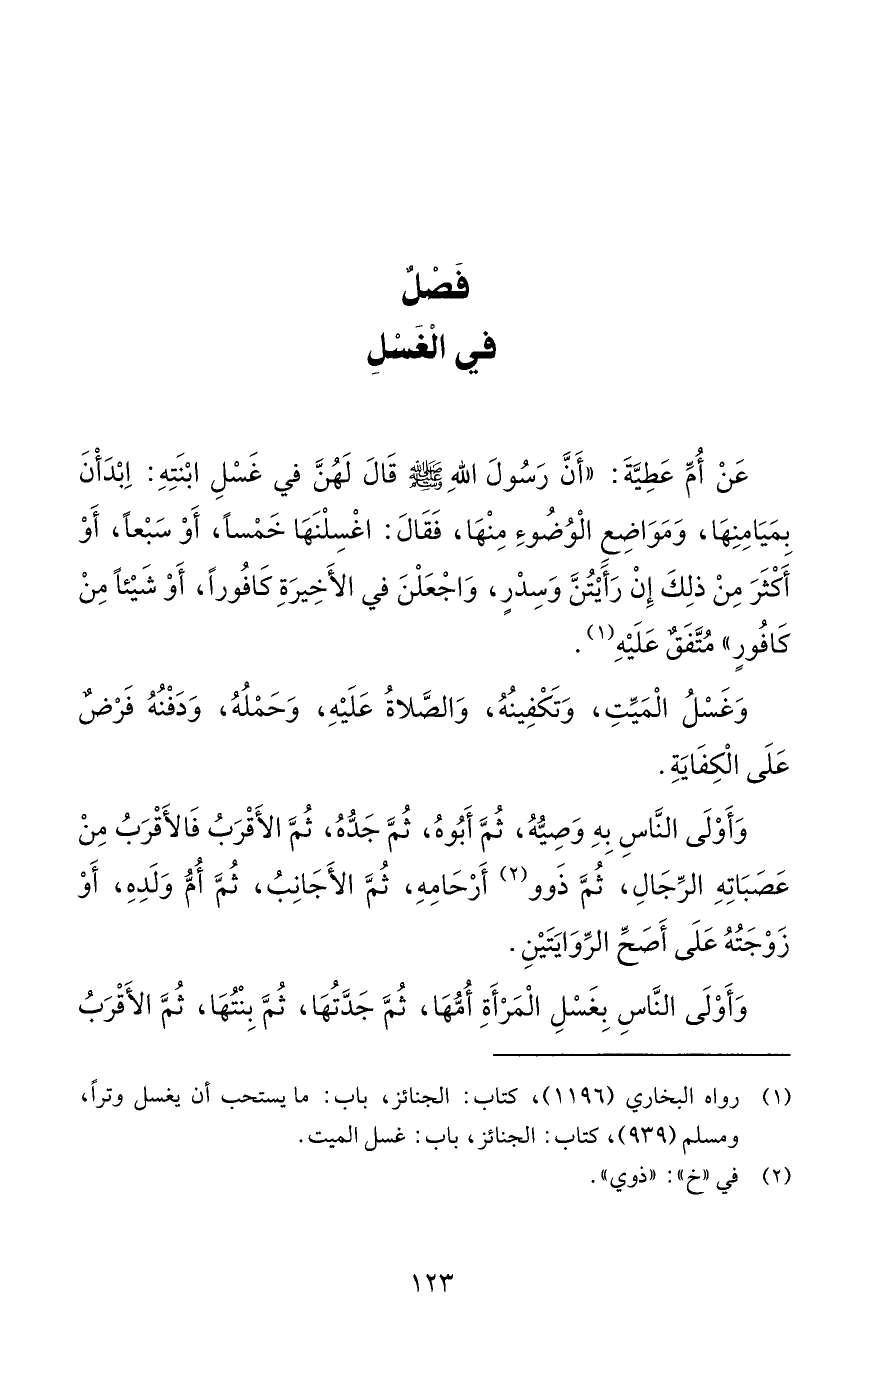 فَصْلٌ
في الْغَسْلِ
عَنْ أُمِّ عَطِيَّةَ: «أَنَّ رَسُولَ اللهِ ﷺ قَالَ لَهُنَّ في غَسْلِ ابْنَتِهِ: اِبْدَأْنَ
بِمَيَامِنِهَا، وَمَوَاضِعِ الْوُضُوءِ مِنْهَا، فَقَالَ: اغْسِلْنَهَا خَمْساً، أَوْ سَبْعاً، أَوْ
أَكْثَرَ مِنْ ذلِكَ إِنْ رَأَيْتُنَّ وَسِدْرٍ، وَاجْعَلْنَ في الأَخِيرَةِ كَافُوراً، أَوْ شَيْئاً مِنْ
كَافُورٍ» مُتَّفَقٌ عَلَيْهِ(١).
وَغَسْلُ الْمَيِّتِ، وَتَكْفِينُهُ، وَالصَّلاةُ عَلَيْهِ، وَحَمْلُهُ، وَدَفْنُهُ فَرْضٌ
عَلَى الْكِفَايَةِ.
وَأَوْلَى النَّاسِ بِهِ وَصِيُّهُ، ثُمَّ أَبُوهُ، ثُمَّ جَدُّهُ، ثُمَّ الأَقْرَبُ فَالأَقْرَبُ مِنْ
عَصَبَاتِهِ الرِّجَالِ، ثُمَّ ذَوو(٢) أَرْحَامِهِ، ثُمَّ الأَجَانِبُ، ثُمَّ أُمُّ وَلَدِهِ، أَوْ
زَوْجَتُهُ عَلَى أَصَحِّ الرِّوَايَتَيْنِ.
وَأَوْلَى النَّاسِ بِغَسْلِ الْمَرْأَةِ أُمُّهَا، ثُمَّ جَدَّتُهَا، ثُمَّ بِنْتُهَا، ثُمَّ الأَقْرَبُ
(١) رواه البخاري (١١٩٦)، كتاب: الجنائز، باب: ما يستحب أن يغسل وتراً،
ومسلم (٩٣٩)، كتاب: الجنائز، باب: غسل الميت.
(٢) في «خ»: «ذوي».
١٢٣